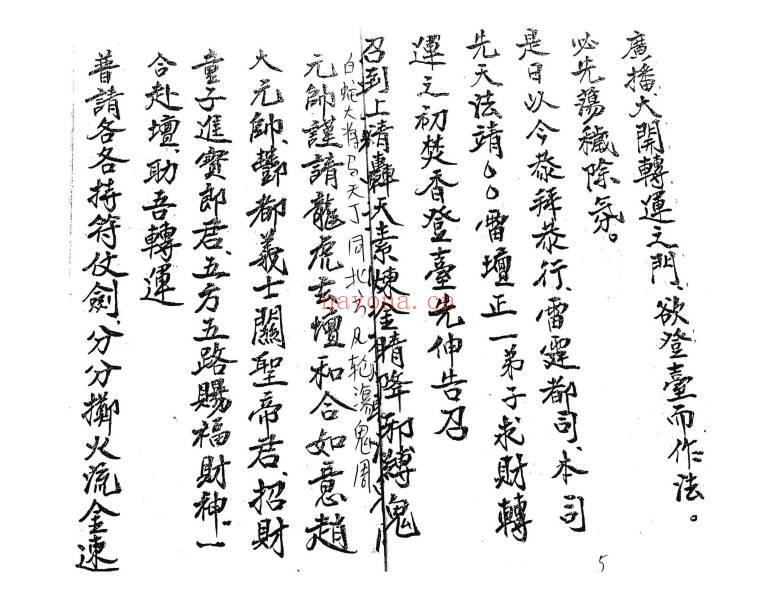 廣播大開轉運之門、欲登臺而作法。
必先蕩穢除氛。
是日以今恭拜恭行、雷霆都司、本司
先天法靖〇〇雷壇正一弟子求財轉
運之初焚香登臺先伸告召
召到上精轟天素煉金睛降邪縛鬼
白蛇大將馬天丁同北方風輪蕩鬼周
元帥謹請龍虎玄壇和合如意趙
大元帥、酆都義士關聖帝君、招財
童子進寶郎君、五方五路賜福財神、一
合赴壇、助吾轉運
普請各各持符仗劍、分分擲火流金速
5
nayona.cn